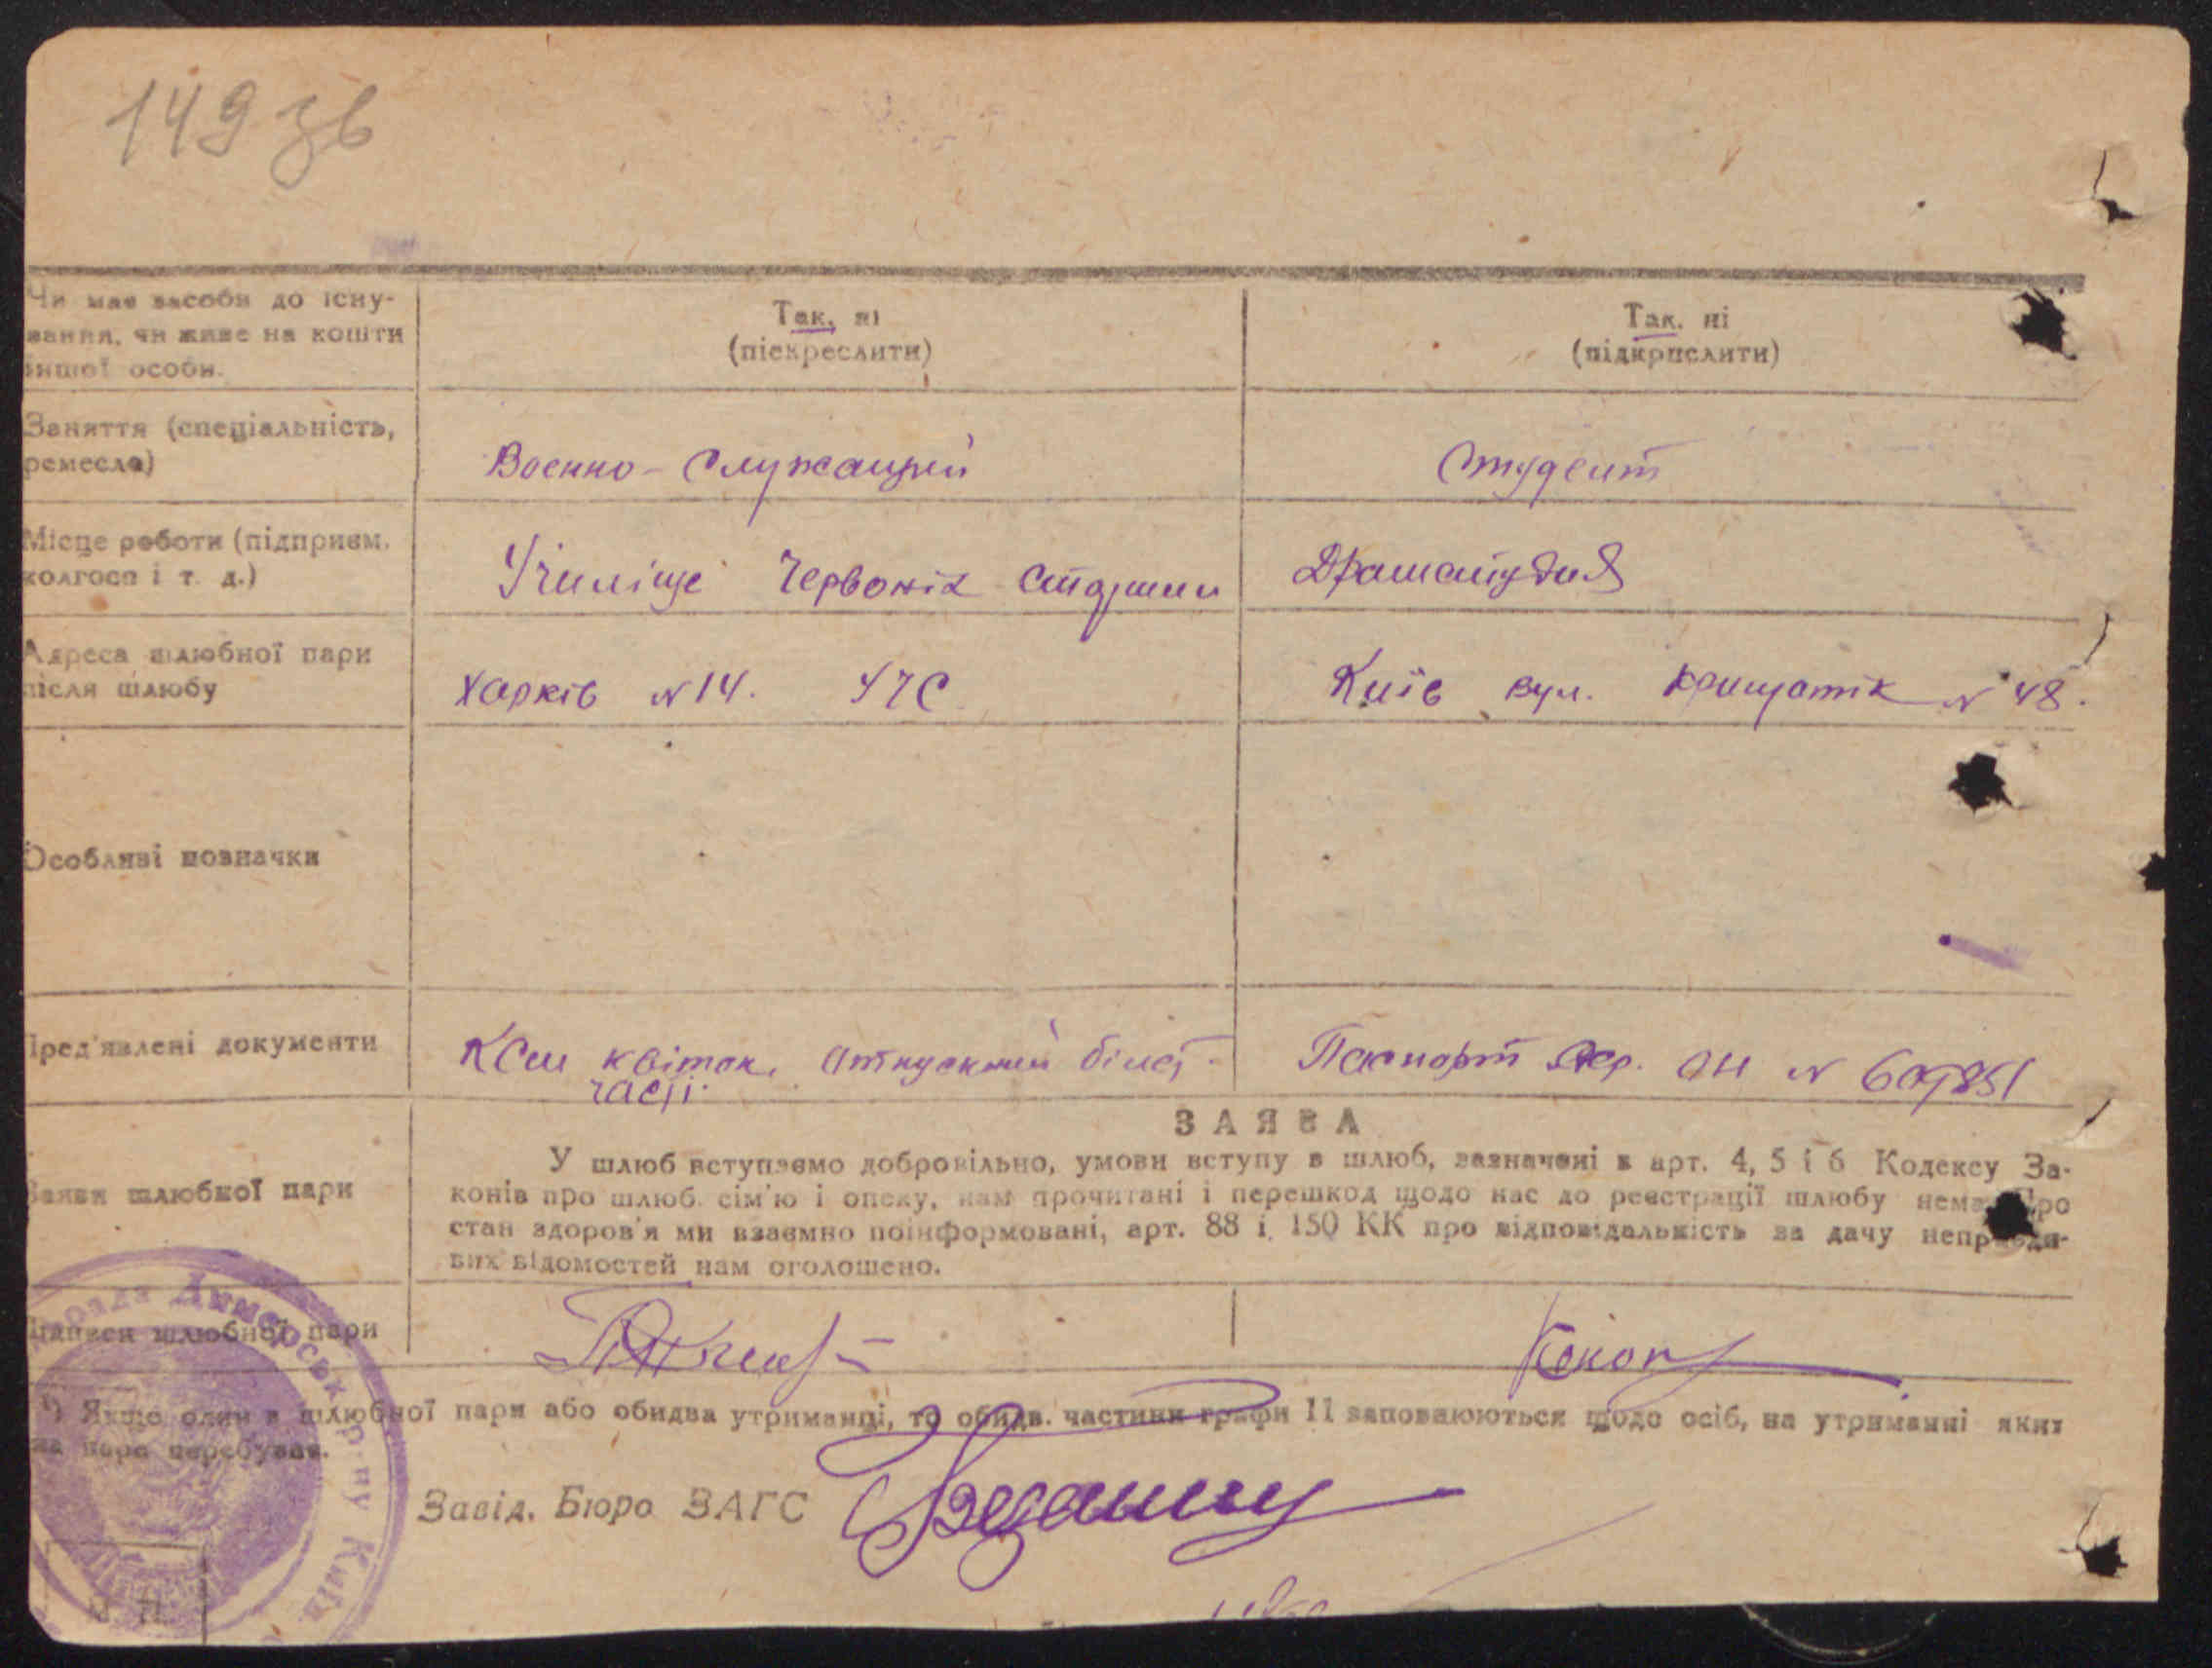 149 зв
Чи має засоби до існу-
вання, чи живе на кошти
іншої особи.
Так, ні
(піскреслити)
Так, ні
(підкрпслити)
Заняття (спеціальність,
ремесла)
Военно-Служащий
Студент
Місце роботи (підприєм.
колгосп і т. д.)
Училіще Червоних Старшин
Драмстудия
Адреса шлюбної пари
після шлюбу
Харків № 14. УЧС
Київ вул. Крищатик № 48.
Особливі позначки
Пред'явлені документи
КСМ квіток, Отпускний білєт
часті.
Паспорт Сер. ОН №
ЗАЯВА
Заяви шлюбної пари
У шлюб вступаємо добровільно, умови вступу в шлюб, зазначені в арт. 4, 5 і 6 Кодексу За-
конів про шлюб. сім'ю і опеку, нам прочитані і перешкод щодо нас до реєстрації шлюбу нема Про
стан здоров'я ми взаємно поінформовані, арт. 88 і 150 КК про відповідальність за дачу неправди-
вих відомостей нам оголошено.
Підписи шлюбної пари
Конон
¹) Якщо один з шлюбної пари або обидва утриманці, то обидв. частини графи 11 заповнюються щодо осіб, на утриманні яких
ця пара перебуває.
Завід. Бюро ЗАГС
Димерськ. р-ну Київ.
М П